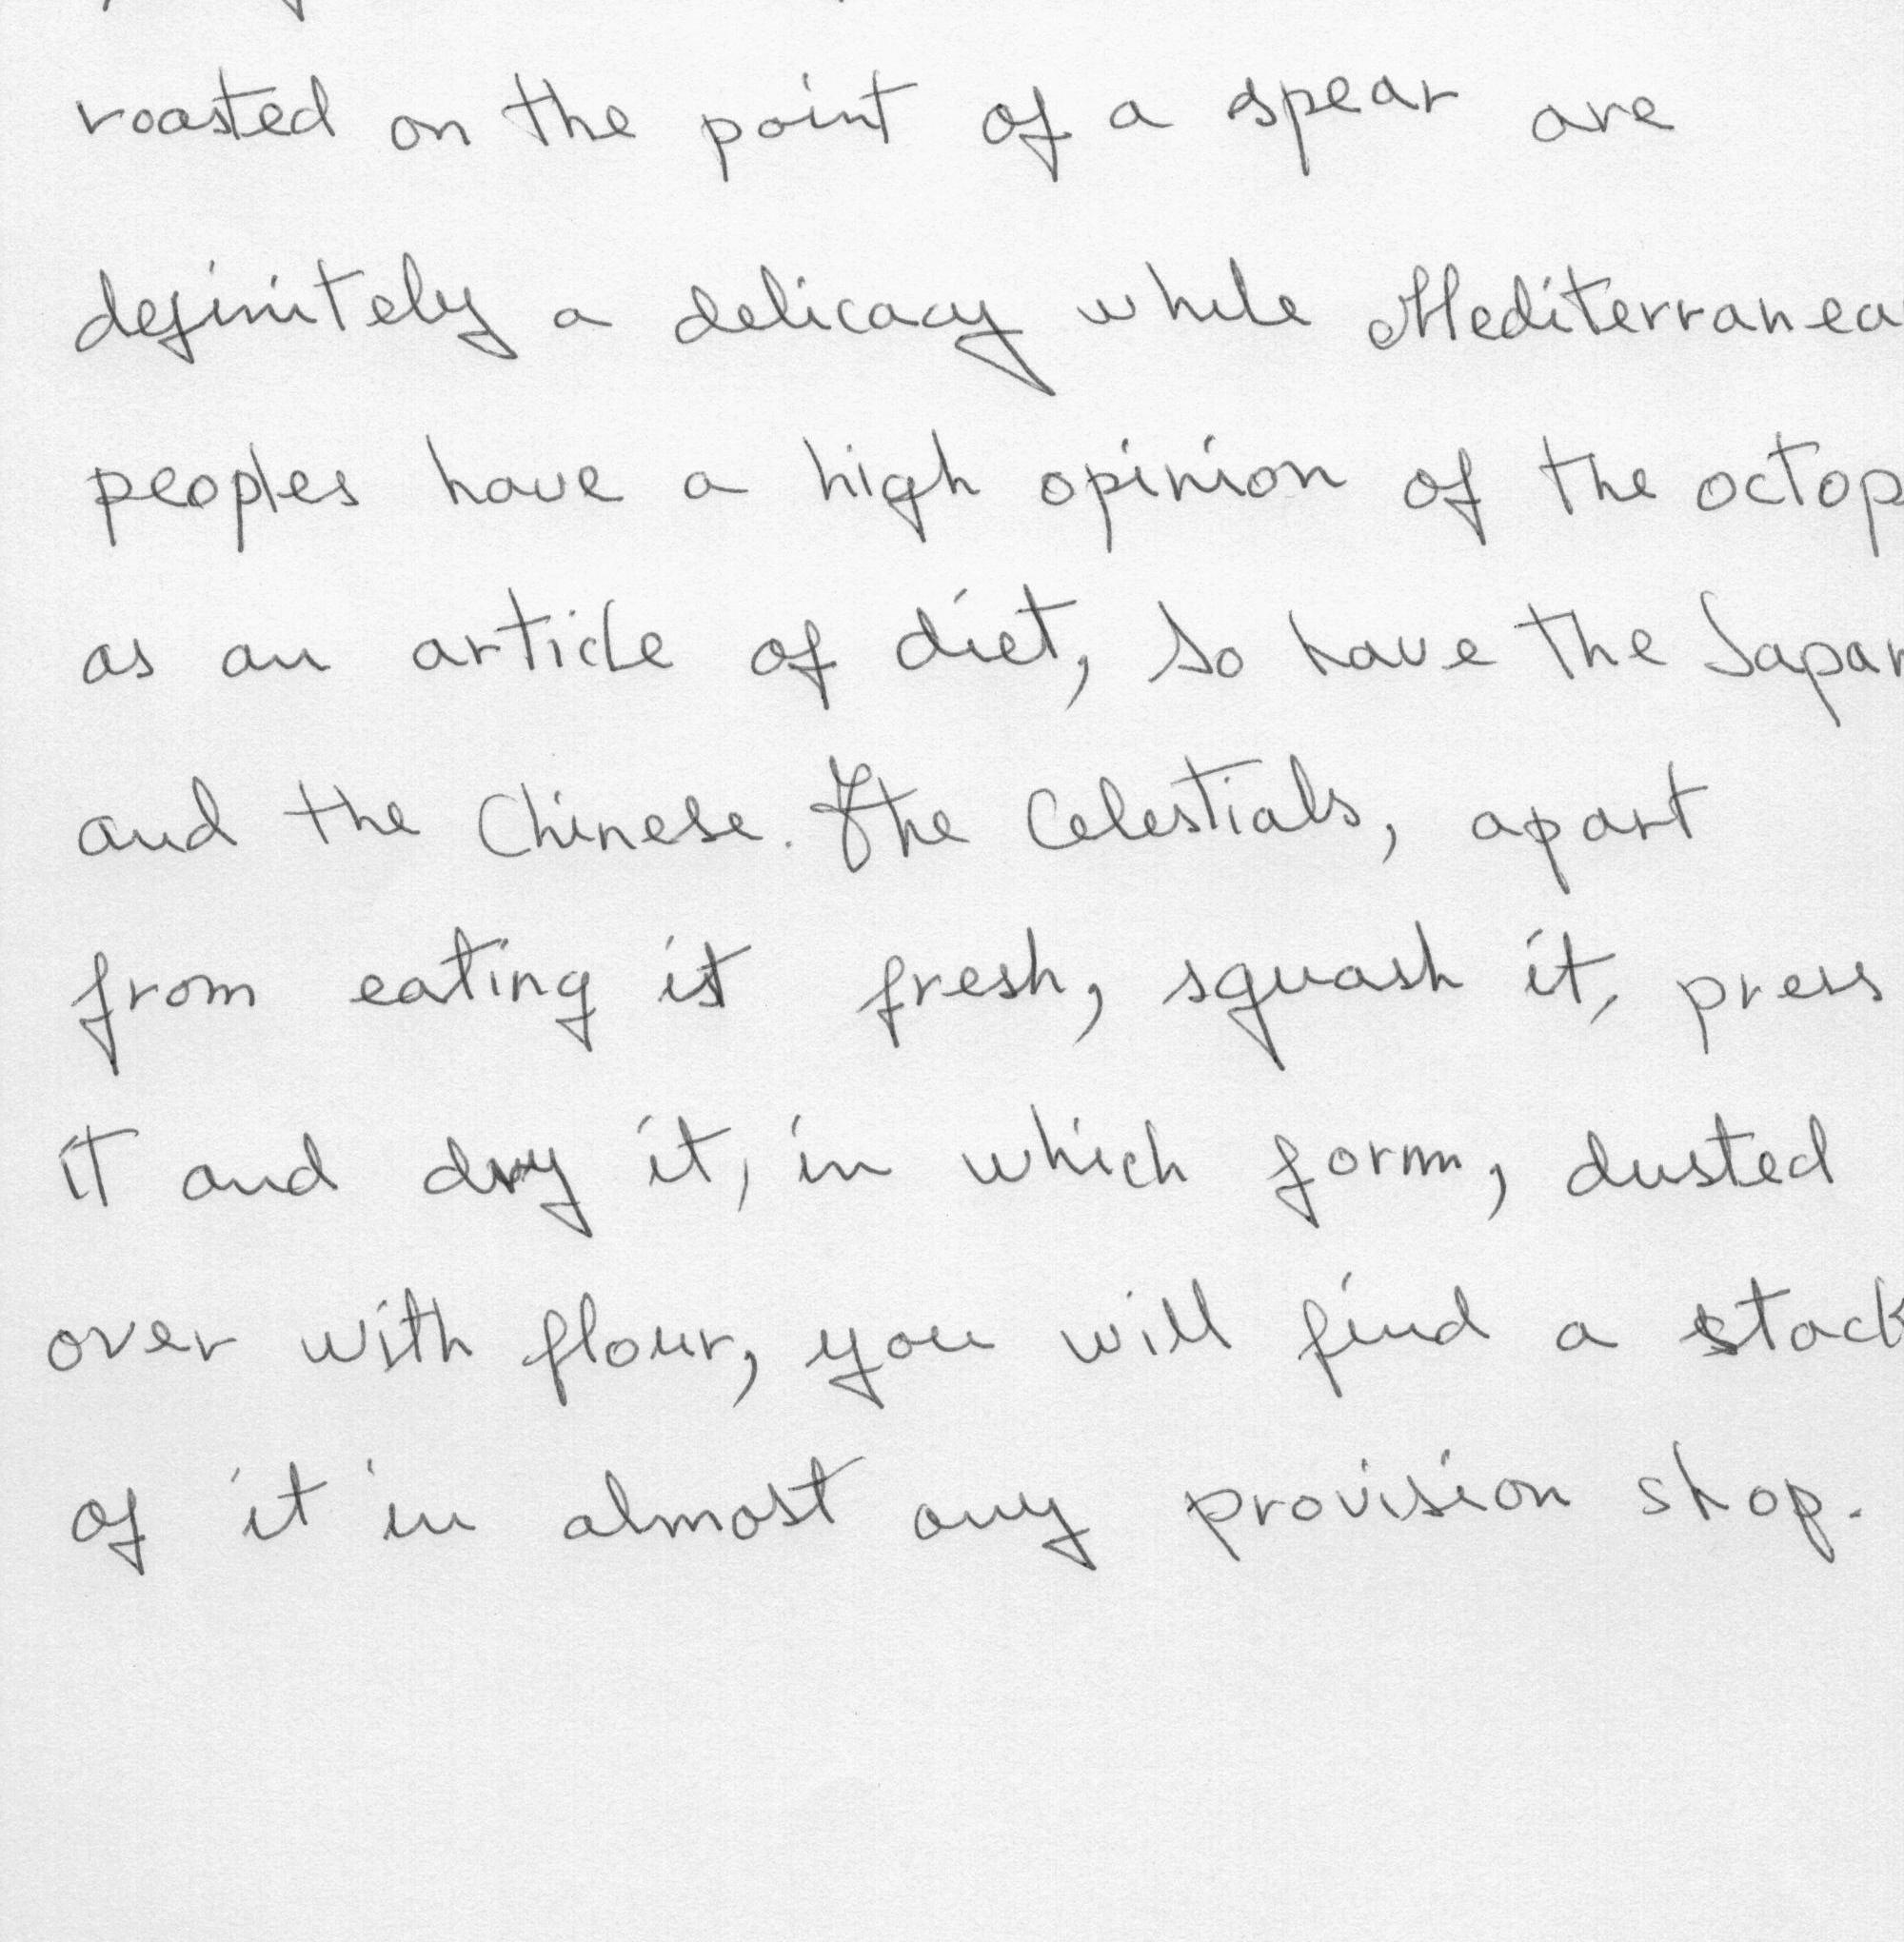 roasted on the point of a spear are
definitely a delicacy while Mediterranea
peoples have a high opinion of the octop
as an article of diet, so have the Japan
and the Chinese. The Celestials, apart
from eating it fresh, squash it, press
it and dry it, in which form, dusted
over with flour, you will find a stack
of it in almost any provision shop.